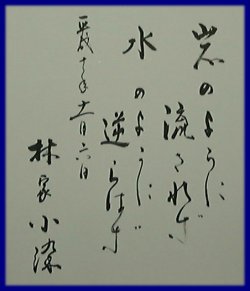 岩のように
流されず
水のように
逆らはず
平成十年十一月六日
林家小染